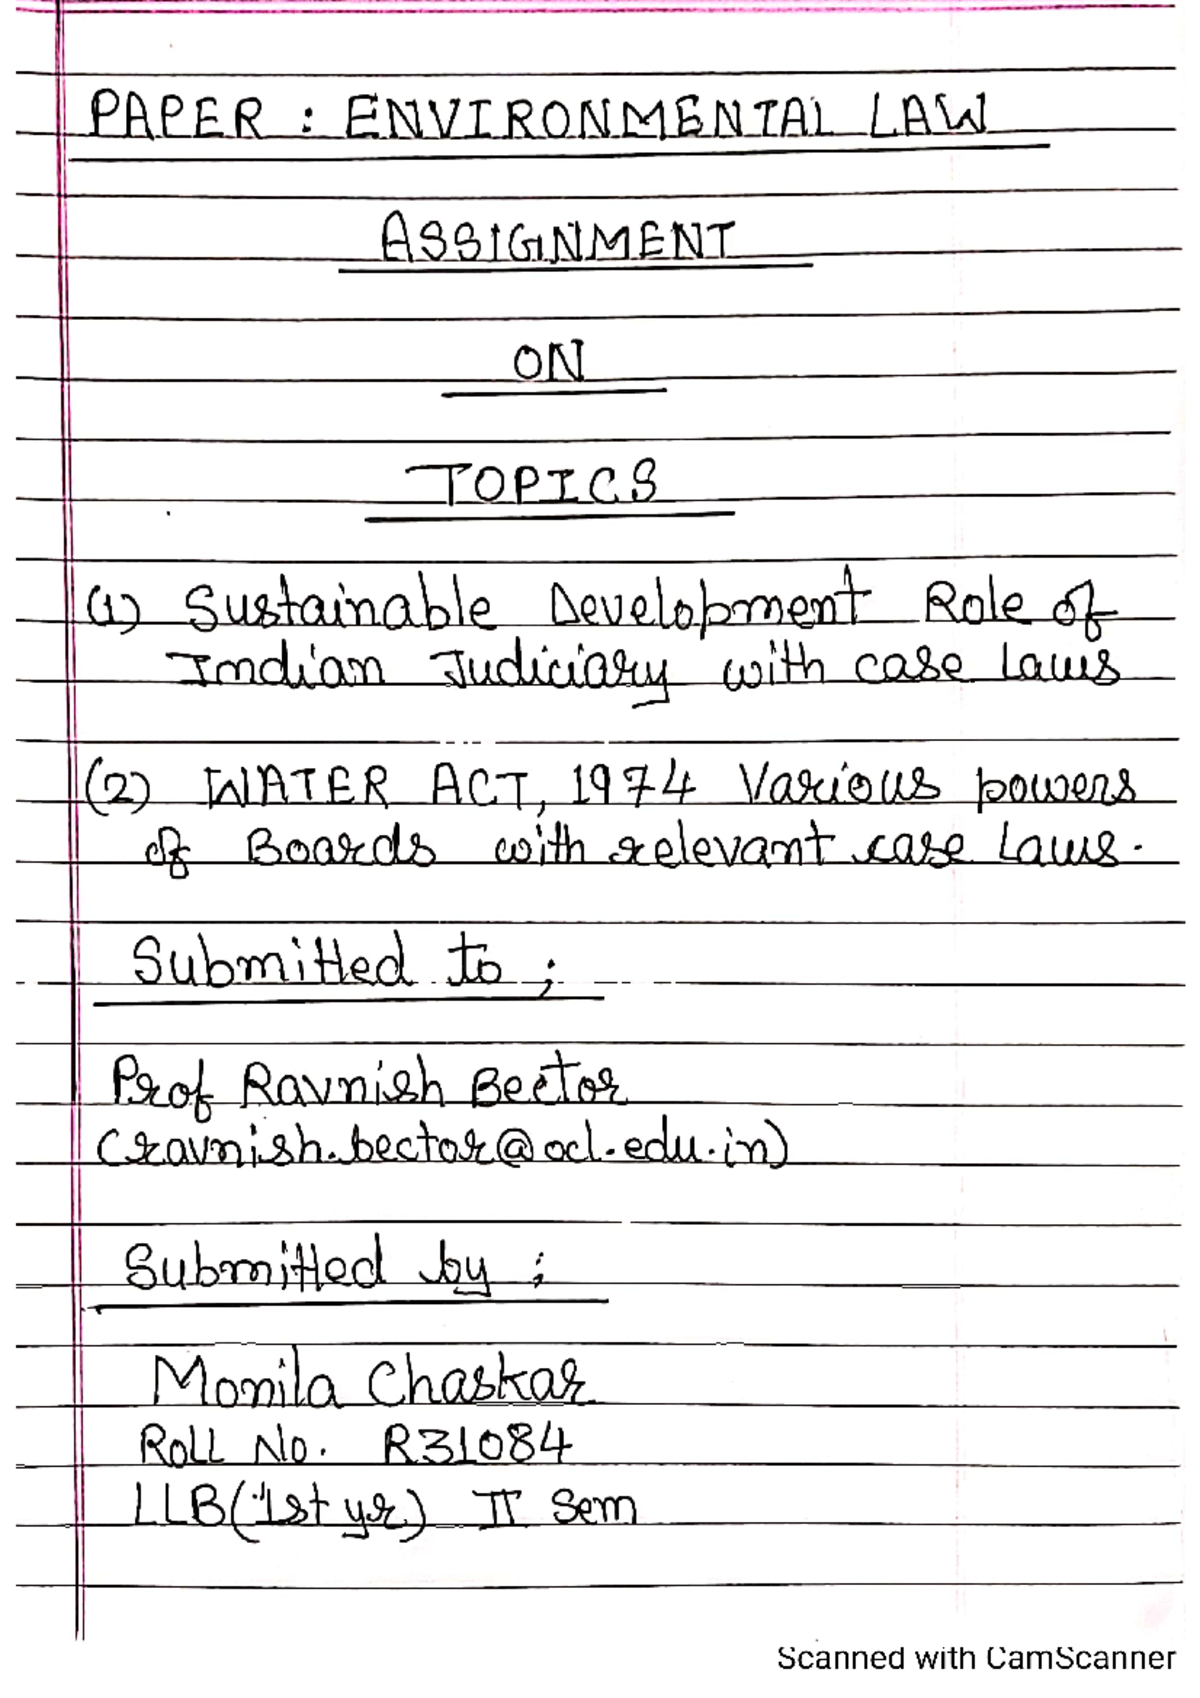 PAPER : ENVIRONMENTAL LAW
ASSIGNMENT
ON
TOPICS
(1) Sustainable Development Role of
Indian Judiciary with case Laws
(2) WATER ACT, 1974 Various powers
of Boards with relevant case Laws.
Submitted to ;
Prof Ravnish Bector
(ravnish.bector@ocl.edu.in)
Submitted by ;
Monila Chaskar
ROLL No. R31084
LLB (1st yr.) II Sem
Scanned with CamScanner